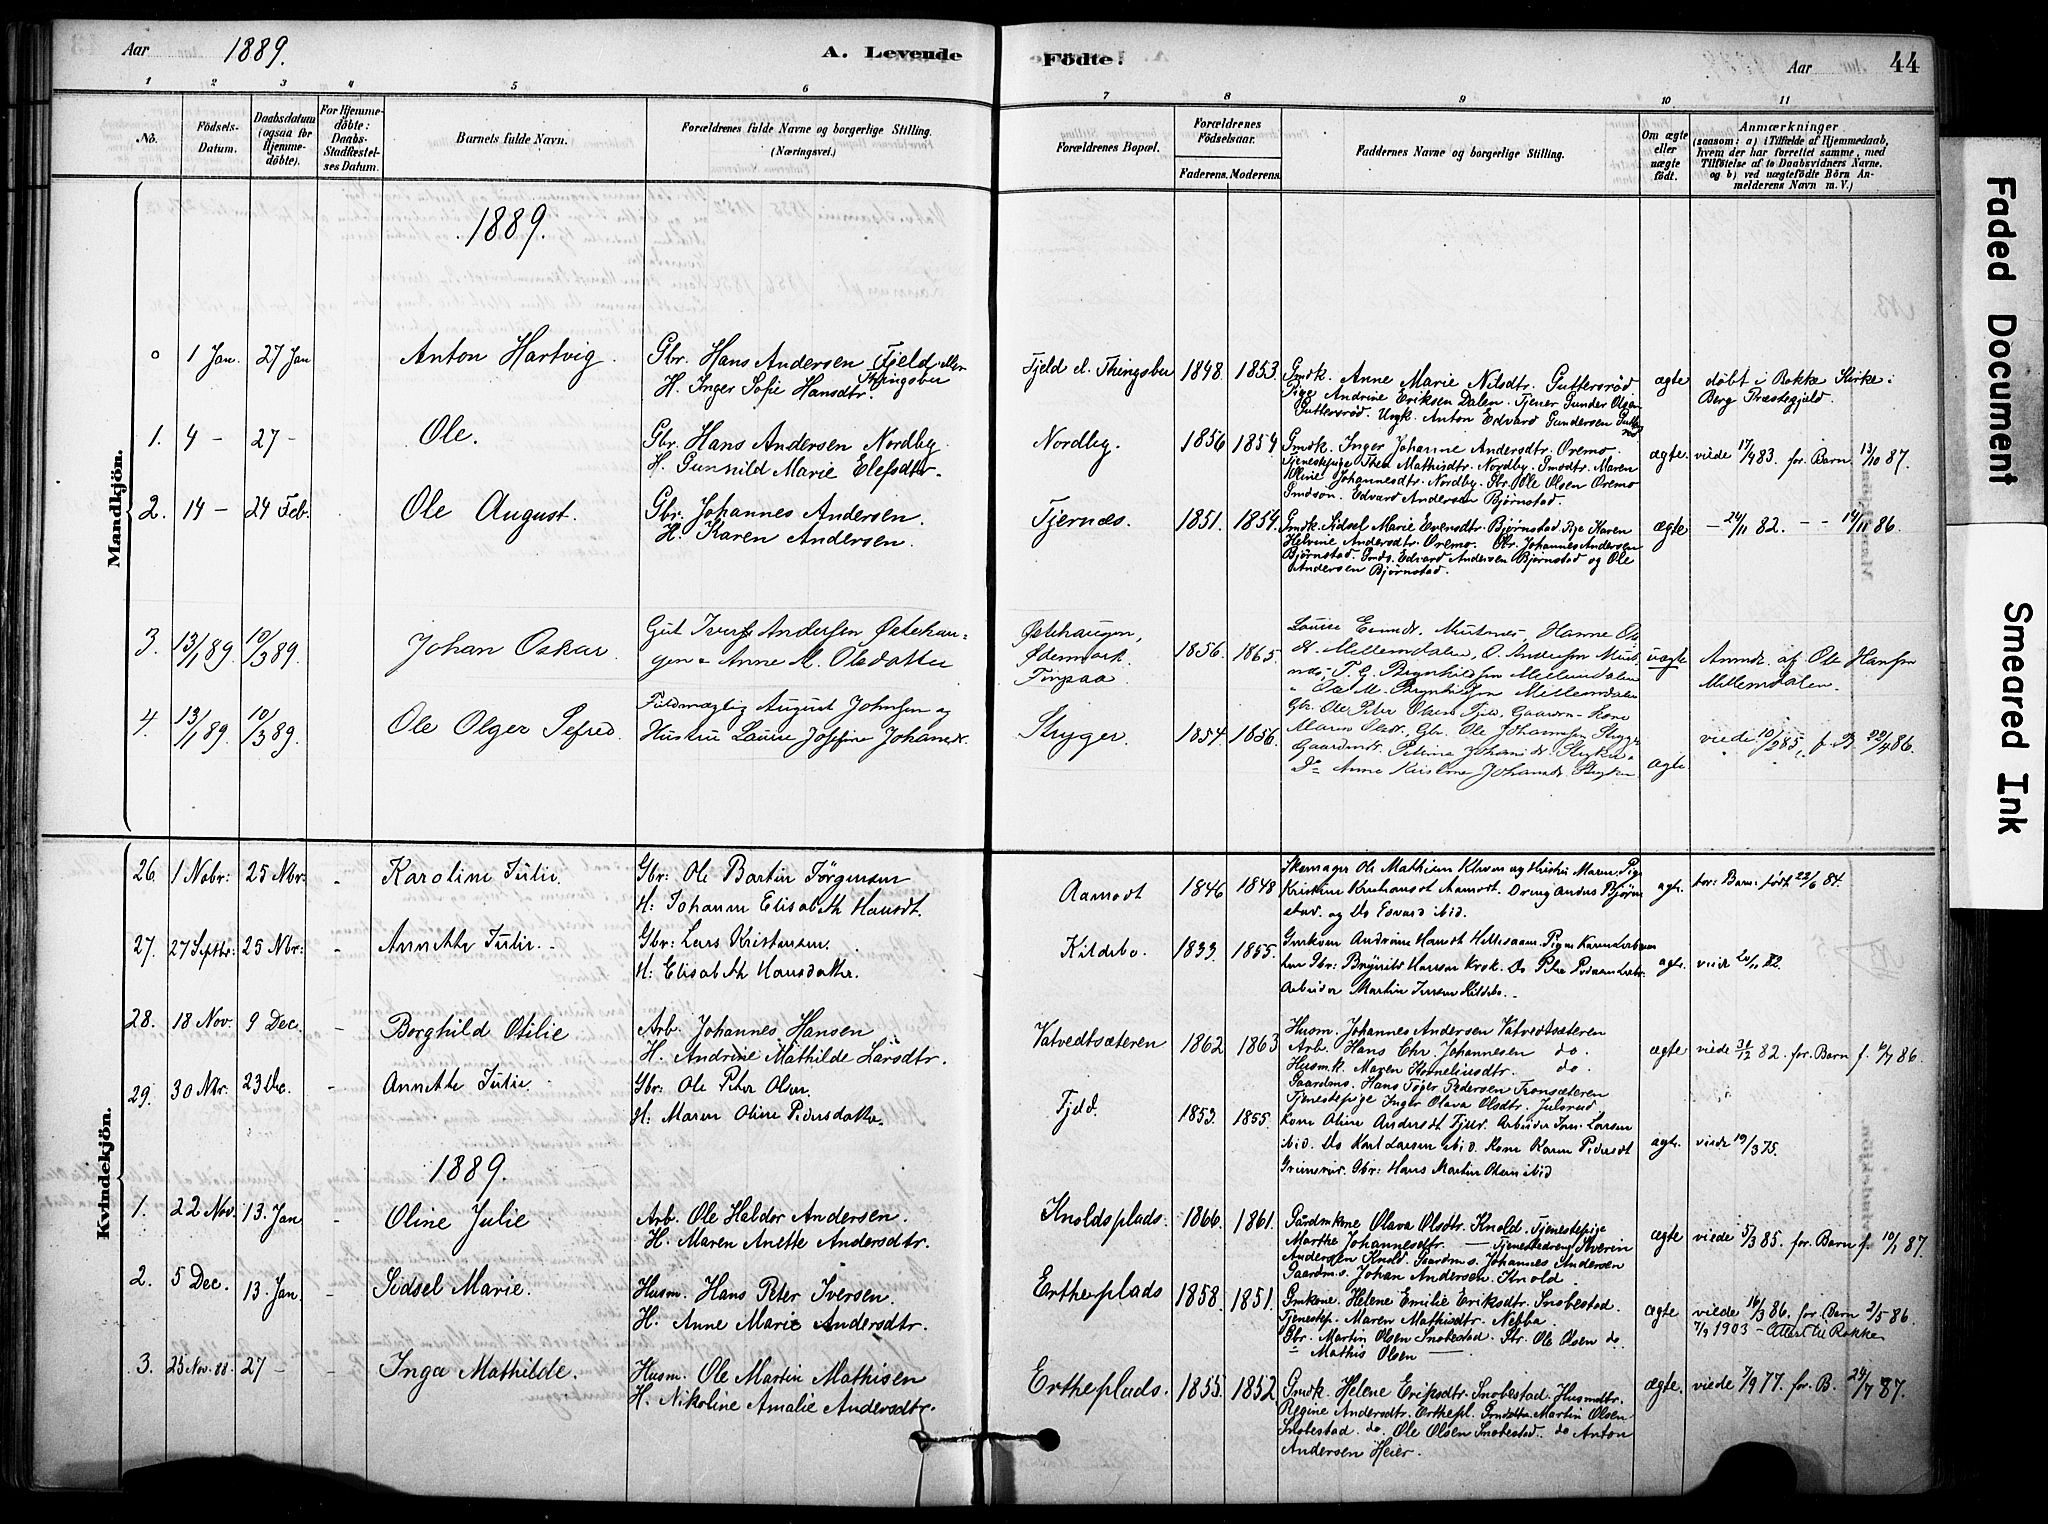 Aar 1889. A. Levende Födte. Aar 44
1 2 3 4 5 6 7 8 9 10 11
No. Födsels-Datum. Daabsdatum (ogsaa for Hjemmedöbte). For Hjemmedöbte: Daabs-Stadfæstelses Datum. Barnets fulde Navn. Forældrenes fulde Navne og borgerlige Stilling. (Næringsvei.) Forældrenes Bopæl. Forældrenes Födselsaar. Faderens. Moderens. Faddernes Navne og borgerlige Stilling. Om ægte eller uægte födt. Anmærkninger (saasom: a) i Tilfælde af Hjemmedaab, hvem der har forrettet samme, med Tilföielse af to Daabsvidners Navne, og b) ved uægtefödte Börn Anmelderens Navn m. V.)
Mandkjön.
1889.
0 1 Jan. 27 Jan Anton Hartvig. Gbr. Hans Andersen Fjeld eller Thingsbu
H. Inger Sofie Hansdtr. Fjeld el. Thingsbu 1848 1853. Gmdk. Anne Marie Nilsdtr. Guttersrød
Pige Andrine Eriksen Dalen. Tjener Gunder Olsen
Guttersrød. Ungk. Anton Edvard Gundersen Guttersrød ægte døbt i Rokke Kirke i
Berg Præstegjeld.
1. 4 - 27 - Ole. Gbr. Hans Andersen Nordby
H. Gunnild Marie Elefsdtr. Nordby. 1856 1854 Gmdk. Inger Johanne Andersdtr. Oremo.
Tjenestepige Thea Mathisdtr. Nordby. Gmdtr. Maren
Oline Johannesdtr. Nordby. Gbr. Ole Olsen Oremo
Gmdsøn. Edvard Andersen Bjørnstad. ægte. viede 17/4 83. for. Barn 13/10 87.
2. 14 - 24 Feb. Ole August. Gbr. Johannes Andersen.
H. Karen Andersen. Tjernæs. 1851. 1854. Gmdk. Sidsel Marie Evensdtr. Bjørnstad Pige Karen
Helvine Andersdtr. Oremo. Gbr. Johannes Andersen
Bjørnstad. Gmds. Edvard Andersen Bjørnstad og Ole
Andersen Bjørnstad. ægte - 24/11 82. - - 14/11 86.
3. 13/1 89. 10/3 89. Johan Oskar. Gut Iver Andersen Østehaugen
& Anne M. Olsdatter Østehaugen,
Ødemark. 1856. 1865. uægte Anmdt. af Ole Hansen
Mellemdalen.
4. 13/1 89. 10/3 89. Ole Olger Sefred. Fuldmægtig August Johnsen og
Hustru Laurie Josefine Johansd. Stryger. 1854. 1856. Gbr. Ole Peter Olsen Fjeld, Gaardm. Kone
Maren ægte viede 10/2 85, f. B 22/4 86.
Kvindekjön.
26. 1 Nobr: 25 Nbr: - Karoline Julie Gbr: Ole Bertin Jørgensen
H: Johanne Elisabeth Hansdt. Aamodt 1846 1848 Skomager Ole Mathisen og Hustru Maren, Pige
ægt. for: Barn: født 22/6 84.
27. 27 Septbr: 25 Nbr: - Annette Julie. Gbr: Lars Kristensen
H: Elisabeth Hansdatter. Kildebo. 1833. 1855. Arbeider Martin Kildebo. ægt. viede 20/11 82.
28. 18 Nov. 9 Dec. - Borghild Otilie Arb. Johannes Hansen
H. Andrine Mathilde Larsdtr. Vatvedtsæteren 1862 1863 Husm. Johannes Andersen Vatvedtsæteren
Arb. Hans Chr. Johannesen do.
Husmk. Maren Korneliusdtr. do.
Gaardms. Hans Tøger Pedersen Tronsæteren
Tjenestepige Inger Olava Olsdtr. Julsrud ægte viede 31/12 82. for. Barn f. 6/7 86.
29. 30 Nbr. 23 Dc. Annette Julie. Gbr: Ole Peter Olsen.
H: Maren Oline Pedersdatter. Fjeld. 1853. 1855. Kone Oline Andersdt Fjeld. Arbeider Larsen
ibid. Do Karl Larsen ibid. Kone Karen Pedersdt
Gbr: Hans Martin Olsen ibid ægt. viede 19/3 75.
1889.
1. 22 Nov. 13. Jan - Oline Julie Arb. Ole Haldor Andersen.
H. Maren Anette Andersdtr. Knoldsplads. 1866. 1861. Gårdmkone Olava Olsdtr. Knold. Tjenestepige
Marthe Johannesdtr. — Tjenestedreng Severin
Andersen Knold. Gaardms. Johannes Andersen
Gaardms. Johan Andersen Knold. ægte viede 5/3 85. for. Barn f. 10/1 87.
2. 5 Dec. 13. Jan - Sidsel Marie. Husm. Hans Peter Iversen.
H. Anne Marie Andersdtr. Ertheplads 1858. 1851. Gmkone. Helene Emilie Eriksdtr. Snobestad.
Tjenestep. Maren Mathisdtr. Nebba.
Gbr. Martin Olsen Snobestad. Gbr. Ole Olsen do
" Mathis Olsen — ægte viede 16/3 86. for. Barn 2/5 86.
7/9 1903 - Attest til Rokke
3. 25 Nov. 88. 27 - - Inga Mathilde. Husm. Ole Martin Mathisen
H. Nikoline Amalie Andersdtr. Ertheplads. 1855. 1852. Gmdk. Helene Eriksdtr. Snobestad. Husmdtr.
Regine Andersdtr. Erthepl. Martin Olsen
Snobestad. do. Ole Olsen Snobestad. do Anton
Andersen Heier. ægte viede 7/9 77. for. B. 24/7 87.
Faded Document
Smeared Ink